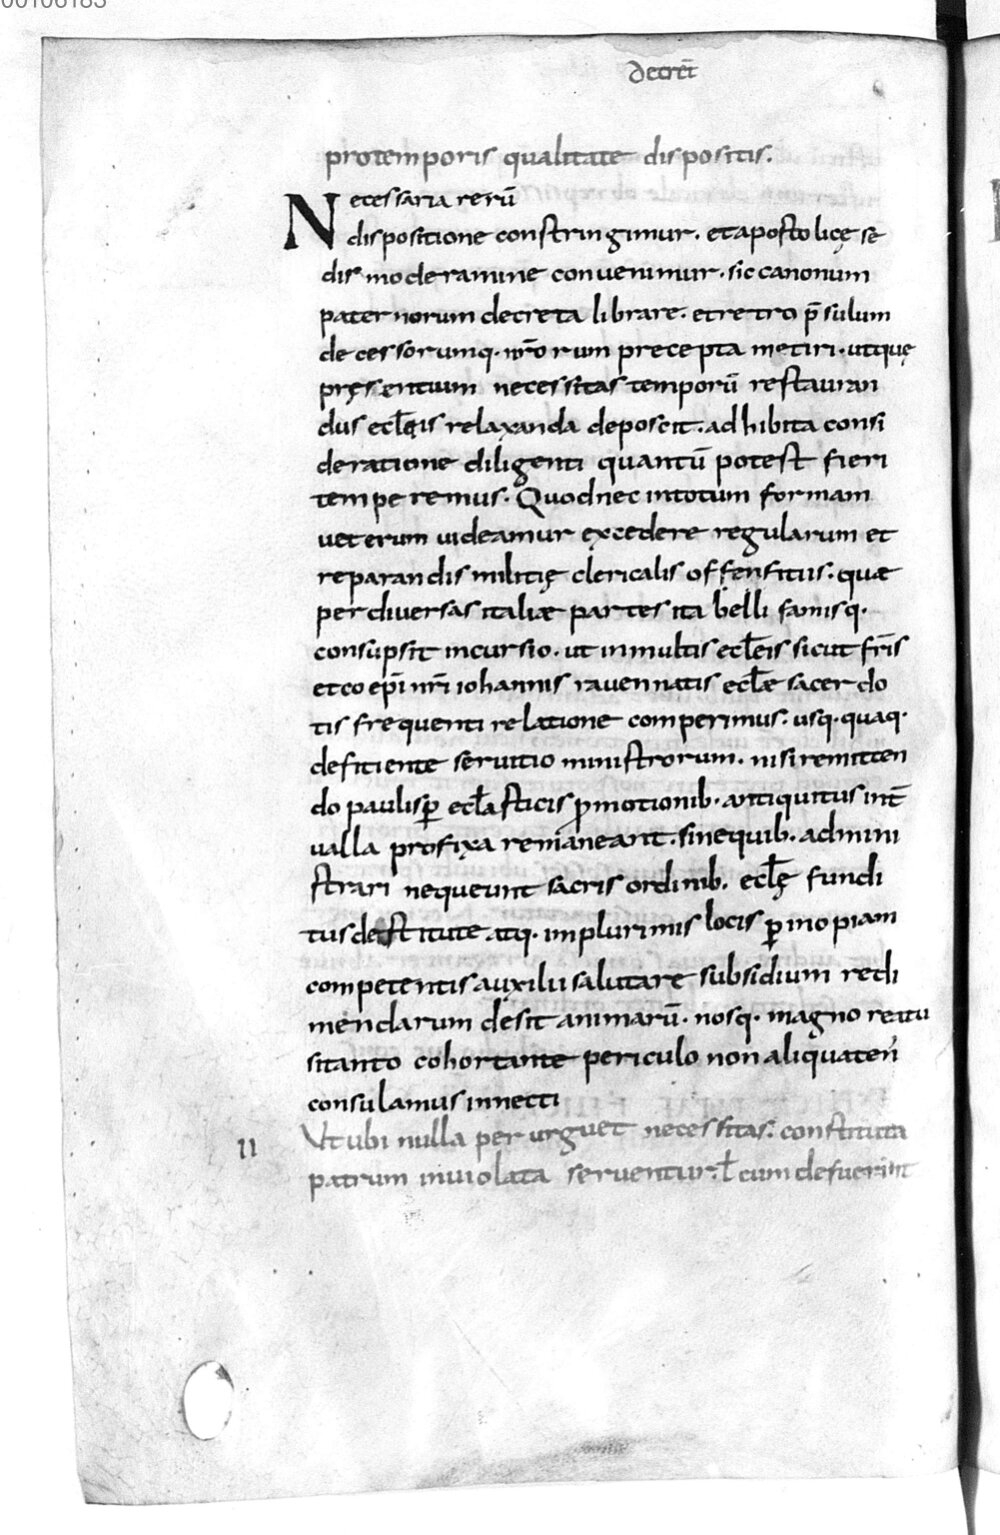 00106183
decret̄
pro temporis qualitate dispositis.
Necessaria rerū
dispositione constringimur. et apostolicę se
dis moderamine convenimur. sic canonum
paternorum decreta librare. et retro p̄sulum
decessorumq. nr̄orum precepta metiri. ut quę
pręsentium necessitas temporū restauran
dis eccl̄eis relaxanda deposcit. adhibita consi
deratione diligenti quantū potest fieri
temperemus. Quod nec in totum formam
veterum videamur excedere regularum et
reparandis militię clericalis offensitus. quae
per diversas italiae partes ita belli famisq.
consūpsit incursio. ut in multis eccl̄eis sicut fr̄is
et coep̄i nr̄i iohannis ravennatis eccl̄ae sacerdo
tis frequenti relatione comperimus. usq. quaq.
deficiente servitio ministrorum. nisi remitten
do paulisꝑ eccl̄asticis ꝓmotionib. antiquitus int̄
valla profixa remaneant. sine quib. admini
strari nequeunt sacris ordinib. eccl̄ę fundi
tus destitute atq. in plurimis locis ꝑ inopiam
competentis auxilii salutare subsidium redi
mendarum desit animarū. nosq. magno reatu
si tanto cohortante periculo non aliquaten'
consulamus innecti
II Ut ubi nulla perurguet necessitas. constituta
patrum inviolata serventur. ł cum defuerint